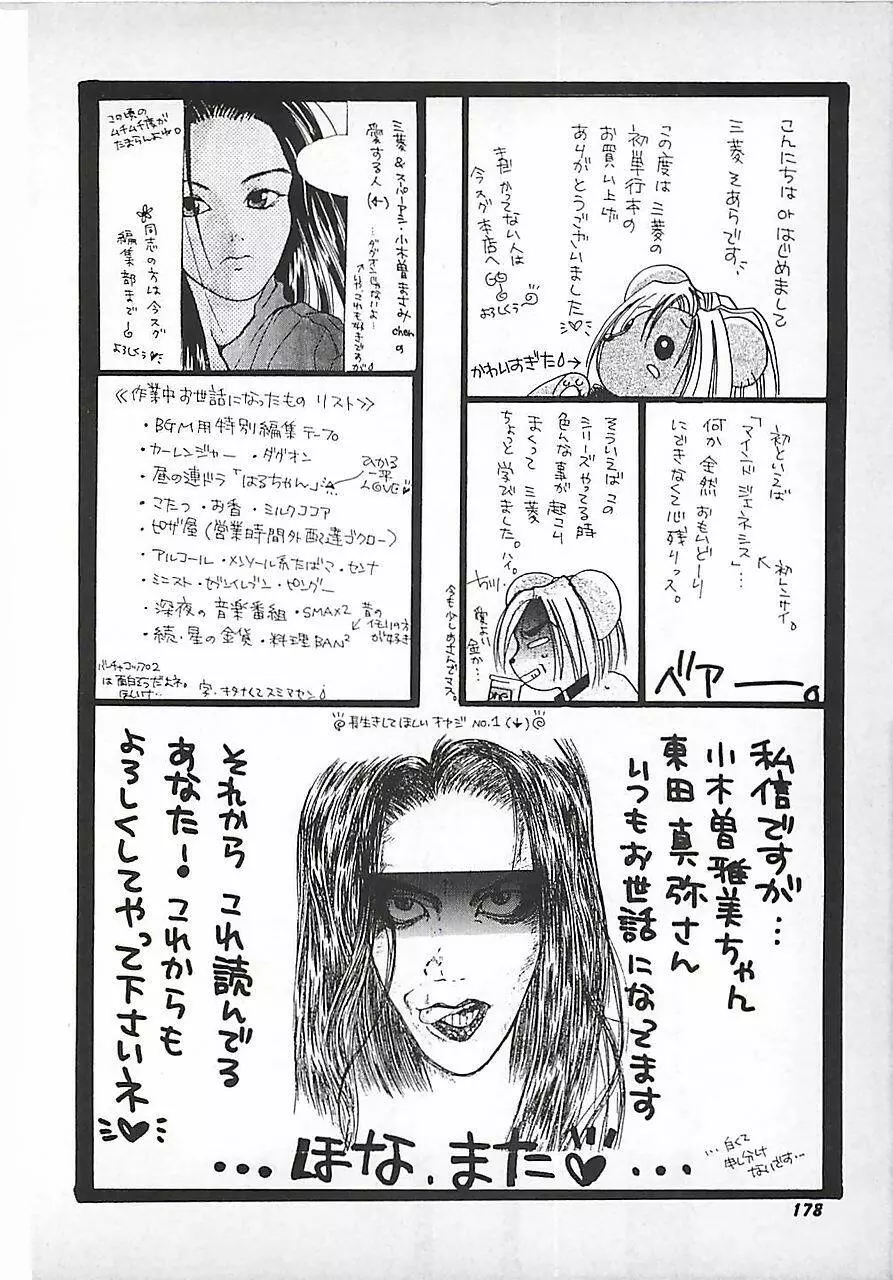 こんにちは or はじめまして
三菱 そあらです
この度は 三菱の
初単行本の
お買い上げ
ありがとうございました
まだかってない人は
今スグ本店へGO
よろしくぅ
かわいすぎた
三菱&スパーアシ・小木曽まさみchanの
愛する人(←)
…ダグオンじゃないよ…
この頃の
ムチムチ度が
たまらんよね。
同志の方は今スグ
編集部まで
よろしくぅ
初といえば
「マインド ジェネシス」…
初レンサイ。
何か全然 おもいどーり
にできなくて心残りっス。
ベアー。
そういえば この
シリーズやってる時
色んな事が起こり
まくって 三菱
ちょっと学びました。ハイ。
愛よい
金か…
≪作業中お世話になったもの リスト≫
・BGM用特別編集テープ
・カーレンジャー・ダグオン
・昼の連ドラ「はるちゃん」
ひかる
一平
LOVE
・こたつ・お香・ミルクココア
・ピザ屋(営業時間外配達ゴクロー)
・アルコール・メンソール系たばこ・センナ
・ミニスト・セブンイレブン・ピングー
・深夜の音楽番組・SMAX2
昔の
イモリの方
が好き
・続・星の金貨・料理BAN²
は面白そうだよネ。
字・キタナくてスミマセン
長生きしてほしい オヤジ NO.1(↓)
私信ですが…
小木曽雅美ちゃん
東田真弥さん
いつもお世話になってます
それから これ読んでる
あなた! これからも
よろしくしてやって下さいネ
…ほな、また…
…白くて
申し分け
ないです…
178